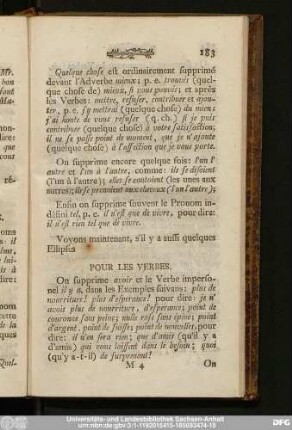 183
Quelque chose est ordinairement supprimé
devant l'Adverbe mieux: p. e. trouvés (quel-
que chose de) mieux, si vous pouvés; et après
les Verbes: mettre, refuser, contribuer et ajou-
ter, p. e. j'y mettrai (quelque chose) du mien;
j'ai honte de vous refuser (q. ch.) si je puis
contribuer (quelque chose) à votre satisfaction;
il ne se passe point de moment, que je n'ajoute
(quelque chose) à l'affection que je vous porte.
On supprime encore quelque fois: l'un l'
autre et l'un à l'autre, comme: ils se disoient
(l'un à l'autre); elles se imitoient (les unes aux
autres); ils se prenoient aux cheveux (l'un l'autre);
Enfin on supprime souvent le Pronom in-
défini tel, p. e. il n'est que de vivre, pour dire:
il n'est rien tel que de vivre.
Voyons maintenant, s'il y a aussi quelques
Ellipses
POUR LES VERBES.
On supprime avoir et le Verbe imperso-
nel il y a, dans les Exemples suivans: plus de
nourriture! plus d'esperance! pour dire: je n'
avois plus de nourriture, d'esperance; point de
couronne sans peine; nulle rose sans épine; point
d'argent, point de suisse; point de nouvelles, pour
dire: il n'en sera rien; que d'amis (qu'il y a
d'amis) qui vous laissent dans le besoin; quoi
(qu'y a-t-il) de surprenant?
M 4 On
Universitäts- und Landesbibliothek Sachsen-Anhalt
urn:nbn:de:gbv:3:1-1192015415-185693474-18
DFG